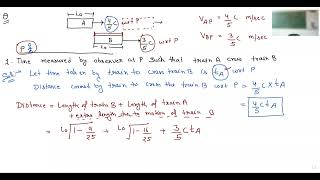 Q
L₀
A 4/5 C wrt P
V_AP = 4/5 C m/sec
L₀
B 3/5 C wrt P
V_BP = 3/5 C m/sec
P
1. Time measured by observer at P such that train A cross train B
Solⁿ: Let time taken by train to cross train B is t_A wrt P
Distance covered by train to cross the train B wrt P = 4/5 C × t_A
Distance = length of train B + length of train A = 4/5 C t_A
+ extra length due to motion of train B
= L₀ √1 - 9/25 + L₀ √1 - 16/25 + 3/5 C t_A